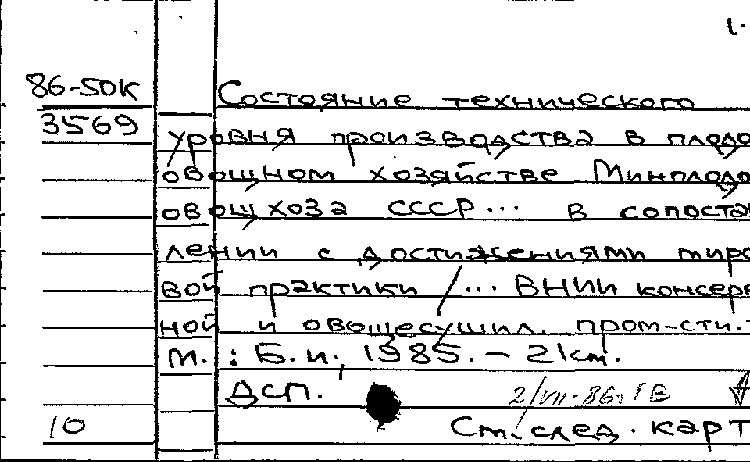 1.
86-50К Состояние технического
3569 уровня производства в плодо
овощном хозяйстве Минплодо
овощхоза СССР... в сопостав
лении с достижениями миро
вой практики /... ВНИИ консерв
ной и овощесушил. пром-сти.-
М.: Б.и., 1985. - 21 см.
ДСП. 2/VII-86г.
10 См. след. карт